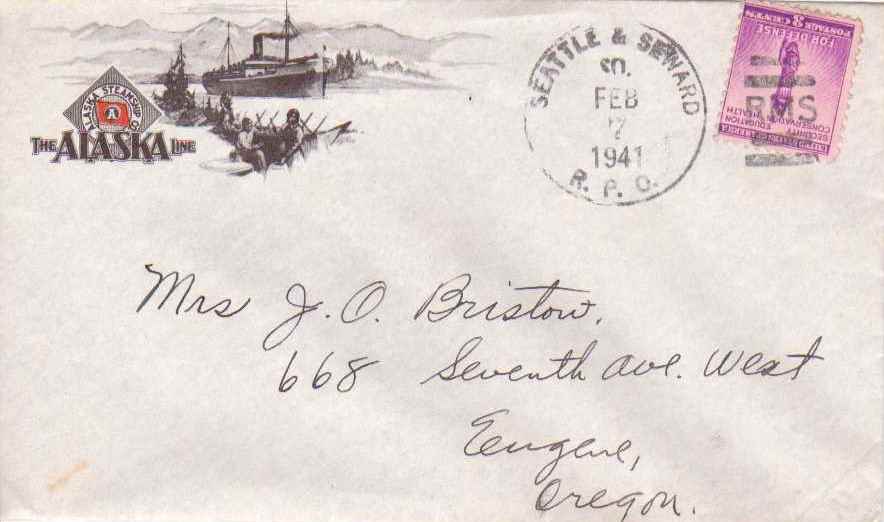 ALASKA STEAMSHIP CO.
A
THE ALASKA LINE
SEATTLE & SEWARD
SO.
FEB
7
1941
R. P. O.
3 CENTS
POSTAGE
FOR DEFENSE
RMS
SECURITY
EDUCATION
CONSERVATION
HEALTH
UNITED STATES OF AMERICA
Mrs J. O. Bristow.
668 Seventh Ave. West
Eugene,
Oregon.